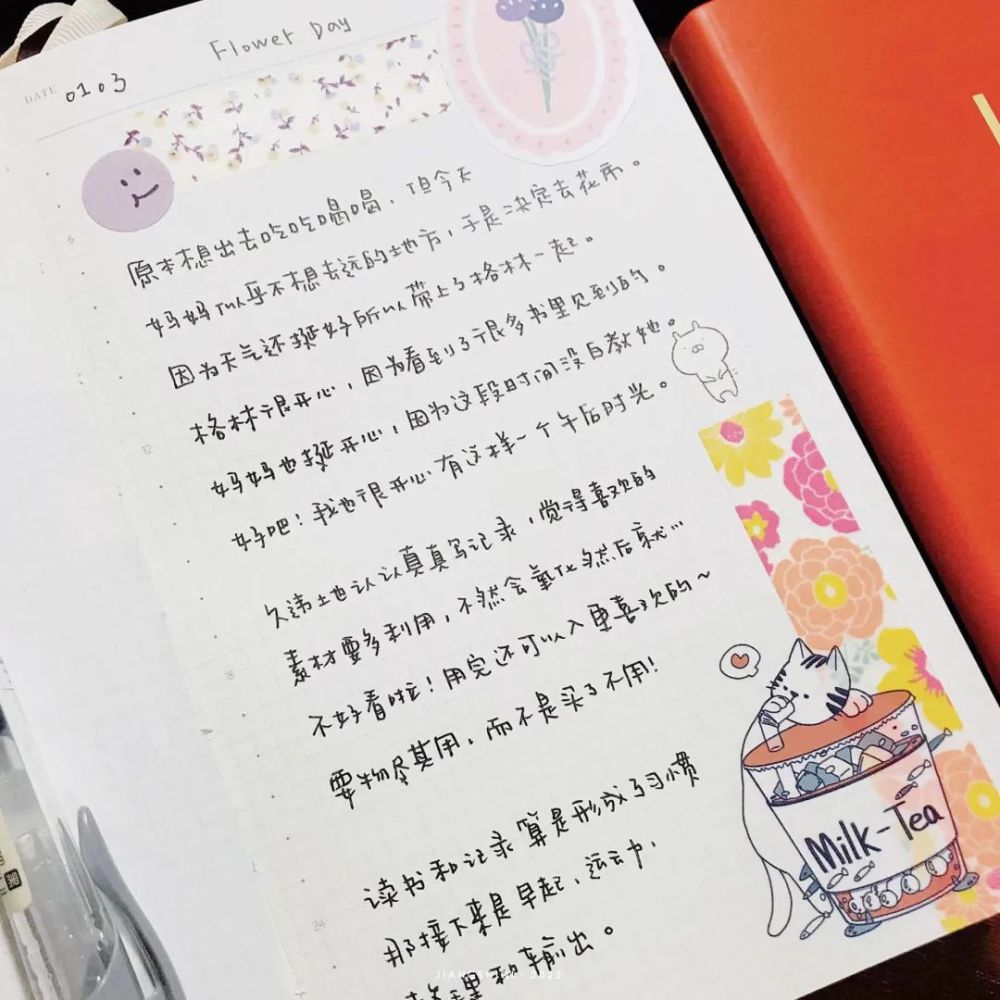 Flower Day
DATE 0103
原本想出去吃吃喝喝、但今天
妈妈似乎不想去远的地方,于是决定去花市。
因为天气还挺好所以带上了格林一起。
格林很开心,因为看到了很多书里见到的。
妈妈也挺开心,因为这段时间没白教她。
好吧!我也很开心有这样一个午后时光。
久违地认认真真写记录,觉得喜欢的
素材要多利用,不然会氧化然后就…
不好看啦!用完还可以入更喜欢的~
要物尽其用,而不是买了不用!
读书和记录算是形成了习惯
那接下来是早起、运动、
整理和输出。
Milk-Tea
6
12
18
24